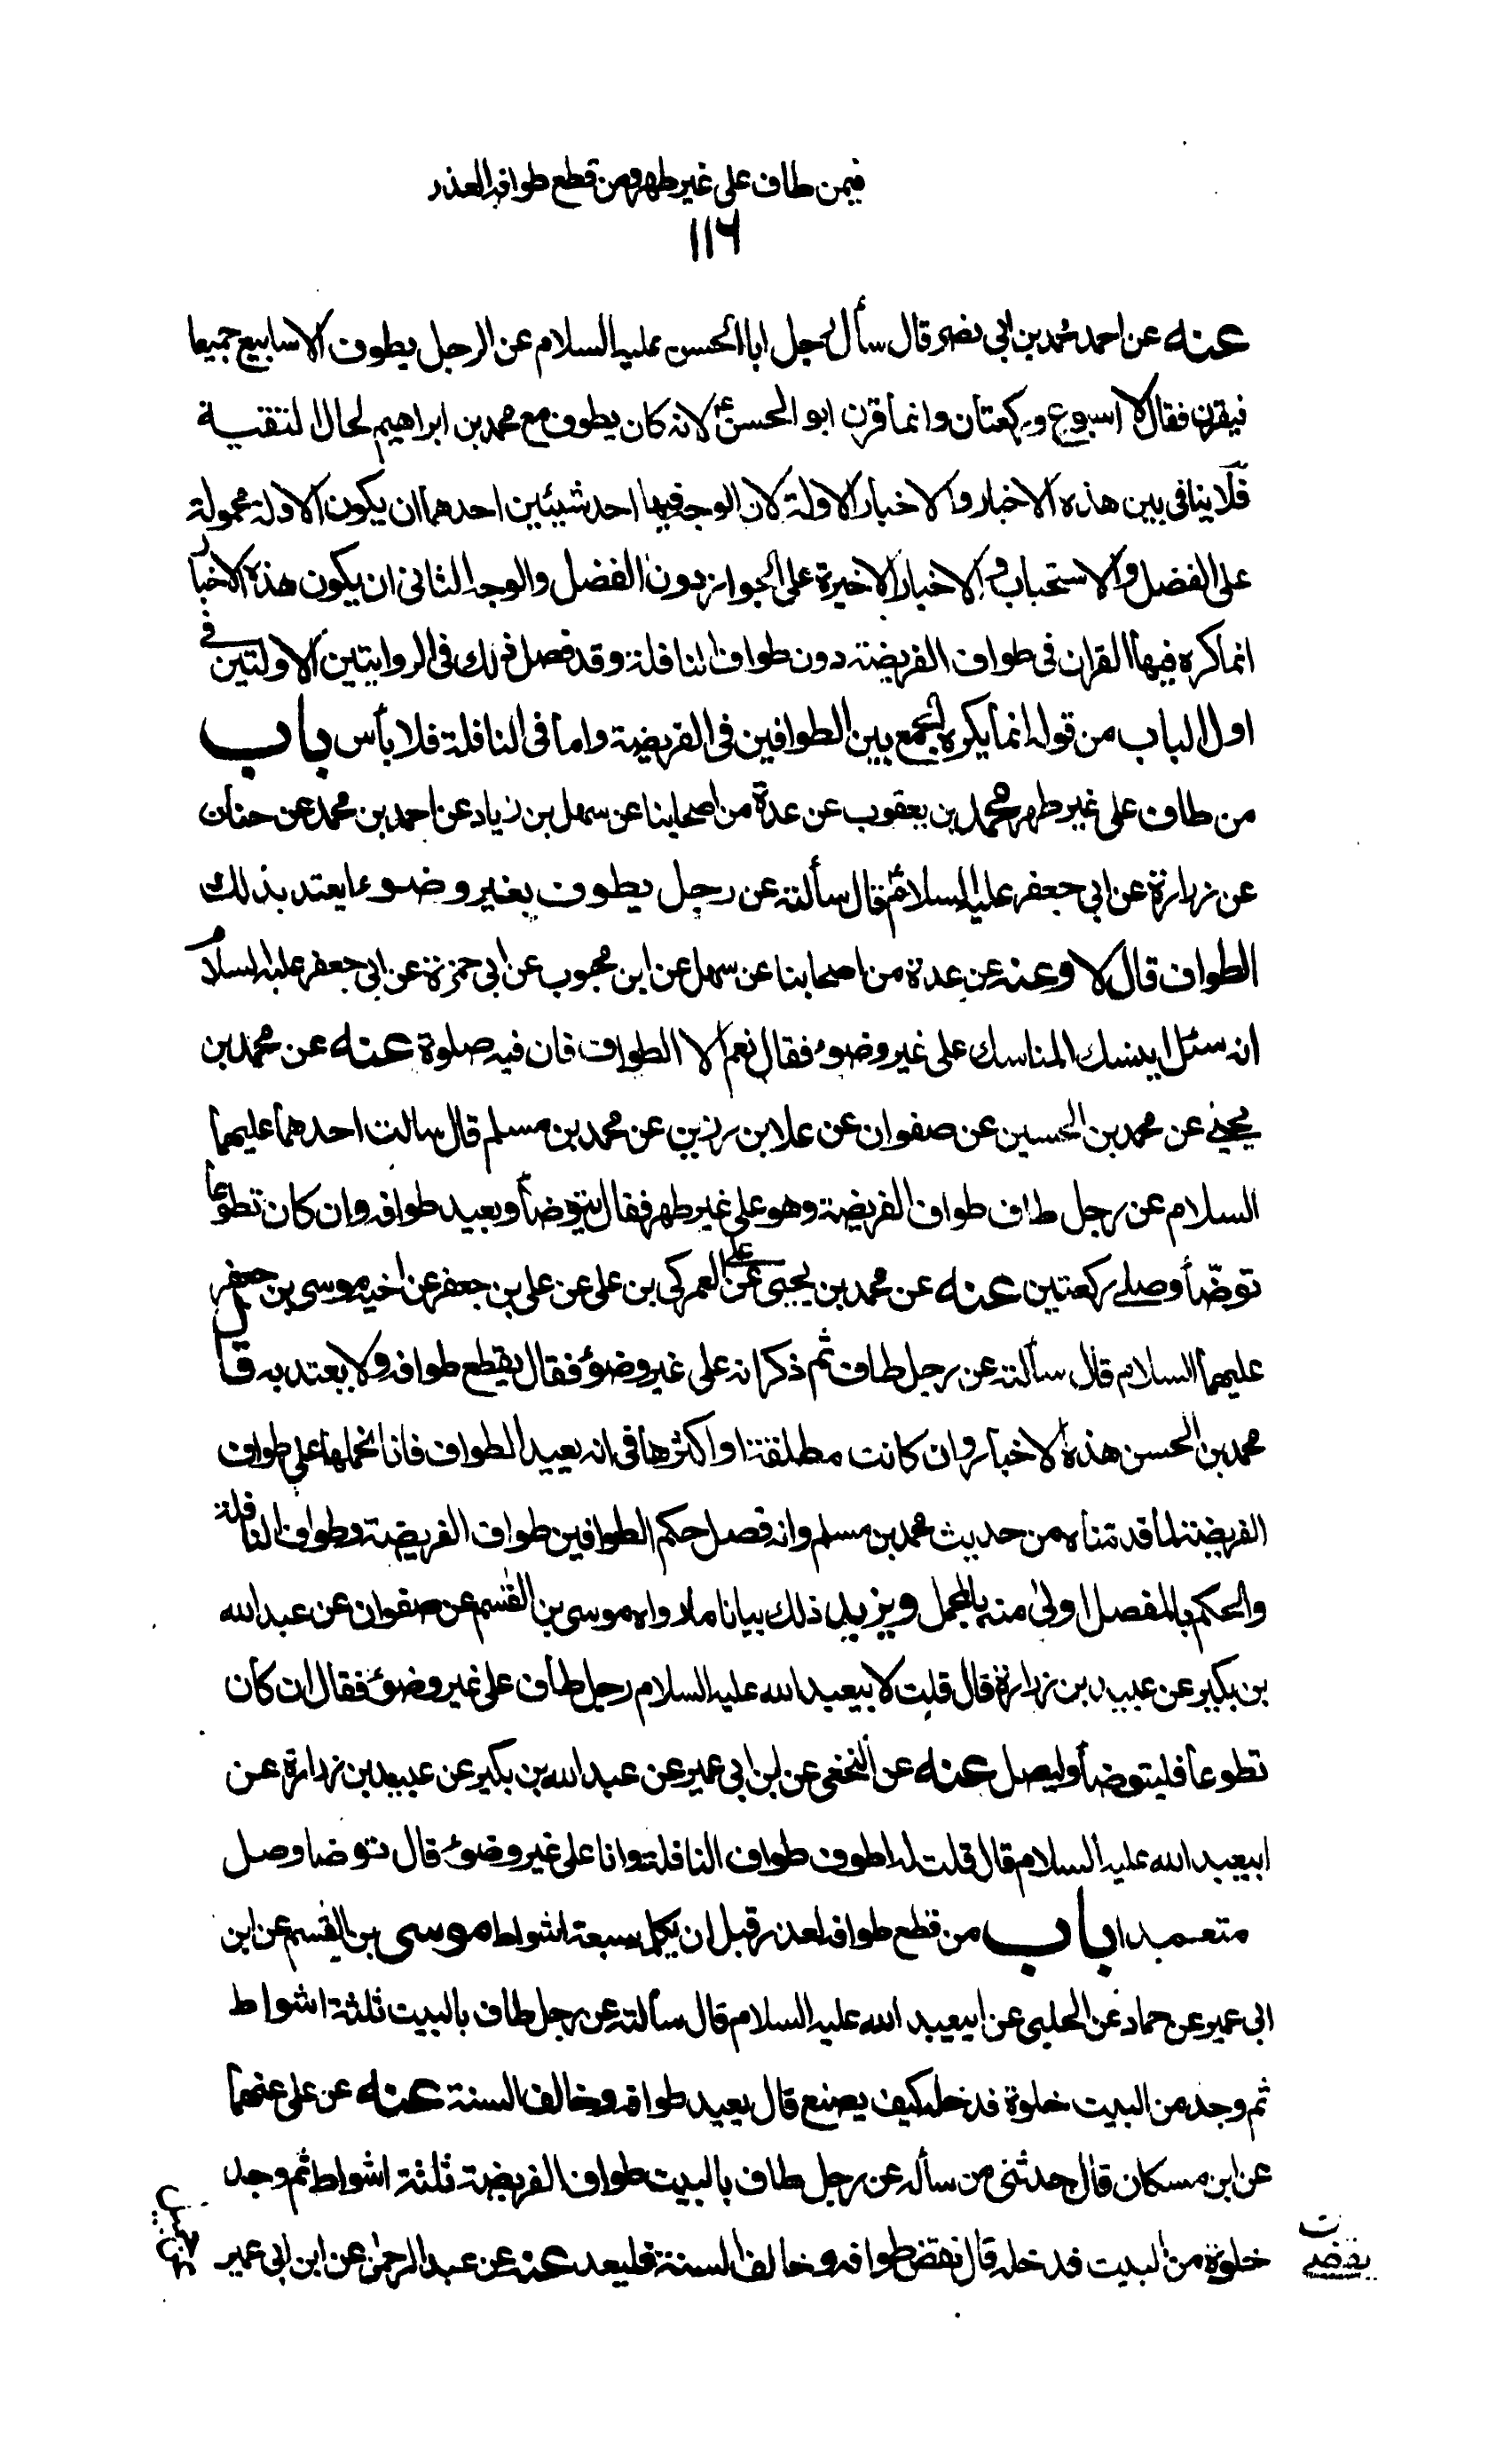 فيمن طاف على غير طهر ومن قطع طوافه لعذر
١١٦
عنه عن احمد محمد بن ابى نصر قال سأل رجل ابا الحسن عليه السلام عن الرجل يطوف الاسابيع جميعا
فيقرن فقال لا اسبوع وركعتان وانما قرن ابو الحسن ع لانه كان يطوف مع محمد بن ابراهيم لحال التقية
فلا ينافى بين هذه الاخبار والاخبار الاولة لان الوجه فيها احد شيئين احدهما ان يكون الاولة محمولة
على الفضل والاستحباب والاخبار الاخيرة على الجواز دون الفضل والوجه الثانى ان يكون هذه الاخبار
انما كره فيها القران فى طواف الفريضة دون طواف النافلة وقد فصل ذلك فى الروايتين الاولتين فى
اول الباب من قوله انما يكره الجمع بين الطوافين فى الفريضة واما فى النافلة فلا بأس باب
من طاف على غير طهر محمد بن يعقوب عن عدة من اصحابنا عن سهل بن زياد عن احمد بن محمد عن حنان
عن زرارة عن ابى جعفر عليه السلام قال سألته عن رجل يطوف بغير وضوء ايعتد بذلك
الطواف قال لا وعنه عن عدة من اصحابنا عن سهل عن ابن محبوب عن ابى حمزة عن ابى جعفر عليه السلام
انه سئل اينسك المناسك على غير وضوء فقال نعم الا الطواف فان فيه صلوة عنه عن محمد بن
يحيى عن محمد بن الحسين عن صفوان عن علا بن رزين عن محمد بن مسلم قال سالت احدهما عليهما
السلام عن رجل طاف طواف الفريضة وهو على غير طهر فقال يتوضأ ويعيد طوافه وان كان تطوعا
توضّأ وصلى ركعتين عنه عن محمد بن يحيى عن العمركى بن على عن على بن جعفر عن اخيه موسى بن جعفر
عليهما السلام قال سألته عن رجل طاف ثم ذكر انه على غير وضوء فقال يقطع طوافه ولا يعتد به قال
محمد بن الحسن هذه الاخبار وان كانت مطلقة او اكثرها فى انه يعيد الطواف فانا نحملها على طواف
الفريضة لما قدمناه من حديث محمد بن مسلم وانه فصل حكم الطوافين طواف الفريضة وطواف النافلة
والحكم بالمفصل اولى منه بالمجمل ويزيد ذلك بيانا ما رواه موسى بن القسم عن صفوان عن عبد الله
بن بكير عن عبيد بن زرارة قال قلت لابيعبد الله عليه السلام رجل طاف على غير وضوء فقال ان كان
تطوعا فليتوضأ وليصل عنه عن النخعى عن ابن ابى عمير عن عبد الله بن بكير عن عبيد بن زرارة عن
ابيعبد الله عليه السلام قال قلت له اطوف طواف النافلة وانا على غير وضوء قال توضا وصل
متعمدا باب من قطع طوافه لعذر قبل ان يكمل سبعة اشواط موسى بن القسم عن ابن
ابى عمير عن حماد عن الحلبى عن ابيعبد الله عليه السلام قال سألته عن رجل طاف بالبيت ثلثة اشواط
ثم وجد من البيت خلوة فدخله كيف يصنع قال يعيد طوافه وخالف السنة عنه عن على عنهما
عن ابن مسكان قال حدثنى من سأله عن رجل طاف بالبيت طواف الفريضة ثلثة اشواط ثم وجد
خلوة من البيت فدخله قال نقض طوافه وخالف السنة فليعد عنه عن عبد الرحمن عن ابن ابى عمير